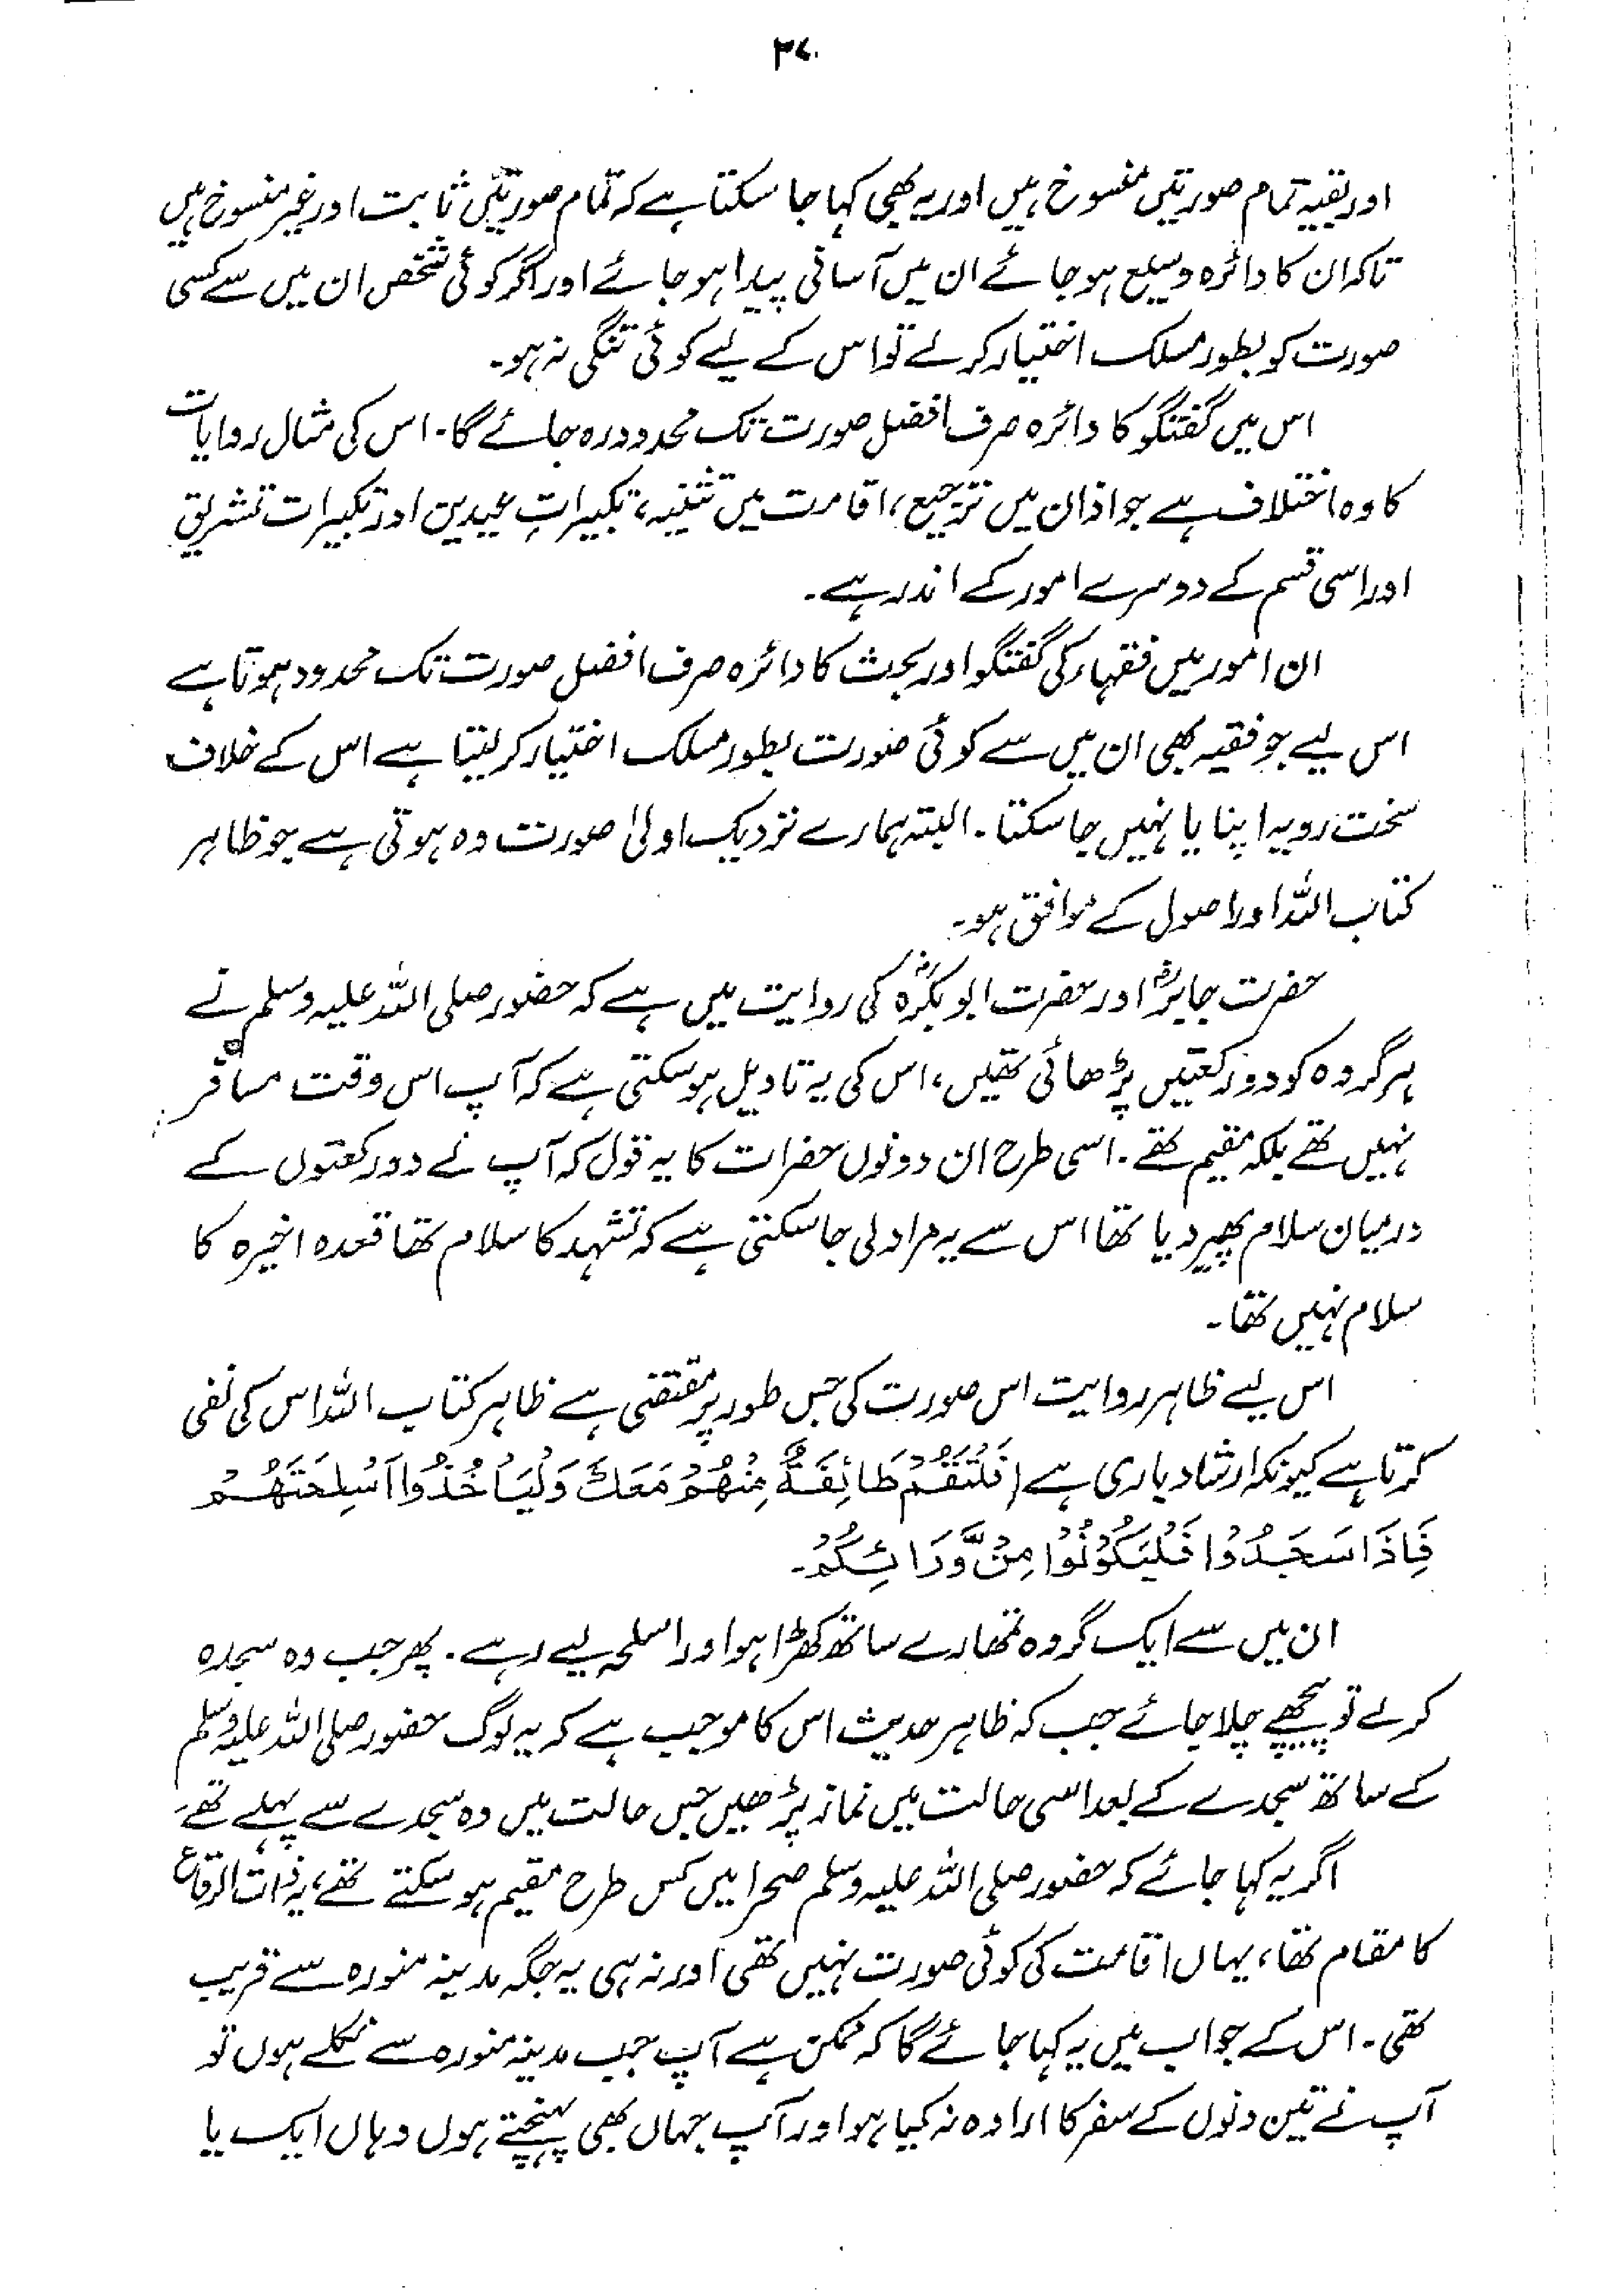 ۳۷۰
اور بقیہ تمام صورتیں منسوخ ہیں اور یہ بھی کہا جا سکتا ہے کہ تمام صورتیں ثابت اور غیر منسوخ ہیں
تاکہ ان کا دائرہ وسیع ہو جائے ان میں آسانی پیدا ہو جائے اور اگر کوئی شخص ان میں سے کسی
صورت کو بطور مسلک اختیار کرلے تو اس کے لیے کوئی تنگی نہ ہو۔
اس میں گفتگو کا دائرہ صرف افضل صورت تک محدود رہ جائے گا۔ اس کی مثال روایات
کا وہ اختلاف ہے جو اذان میں ترجیع، اقامت میں تثنیہ، تکبیراتِ عیدین اور تکبیرات تشریق
اور اسی قسم کے دوسرے امور کے اندر ہے۔
ان امور میں فقہاء کی گفتگو اور بحث کا دائرہ صرف افضل صورت تک محدود ہوتا ہے
اس لیے جو فقیہ بھی ان میں سے کوئی صورت بطور مسلک اختیار کر لیتا ہے اس کے خلاف
سخت رویہ اپنایا نہیں جا سکتا۔ البتہ ہمارے نزدیک اولیٰ صورت وہ ہوتی ہے جو ظاہر
کتاب اللہ اور اصول کے موافق ہو۔
حضرت جابرؓ اور حضرت ابوبکرہؓ کی روایت میں ہے کہ حضور صلی اللہ علیہ وسلم نے
ہر گروہ کو دو رکعتیں پڑھائی تھیں، اس کی یہ تاویل ہو سکتی ہے کہ آپ اس وقت مسافر
نہیں تھے بلکہ مقیم تھے۔ اسی طرح ان دونوں حضرات کا یہ قول کہ آپ نے دو رکعتوں کے
درمیان سلام پھیر دیا تھا اس سے یہ مراد لی جا سکتی ہے کہ تشہد کا سلام تھا قعدہ اخیرہ کا
سلام نہیں تھا۔
اس لیے ظاہر روایت اس صورت کی جس طور پر مقتضی ہے ظاہر کتاب اللہ اس کی نفی
کرتا ہے کیونکہ ارشاد باری ہے (فَلْتَقُمْ طَائِفَةٌ مِنْهُمْ مَعَكَ وَلْيَأْخُذُوا اَسْلِحَتَهُمْ
فَاِذَا سَجَدُوْا فَلْيَكُوْنُوْا مِنْ وَّرَائِكُمْ۔
ان میں سے ایک گروہ تمھارے ساتھ کھڑا ہو اور اسلحہ لیے رہے۔ پھر جب وہ سجدہ
کرلے تو پیچھے چلا جائے جب کہ ظاہر حدیث اس کا موجب ہے کہ یہ لوگ حضور صلی اللہ علیہ وسلم
کے ساتھ سجدے کے بعد اسی حالت میں نماز پڑھیں جس حالت میں وہ سجدے سے پہلے تھے۔
اگر یہ کہا جائے کہ حضور صلی اللہ علیہ وسلم صحرا میں کس طرح مقیم ہو سکتے تھے، یہ ذات الرقاع
کا مقام تھا، یہاں اقامت کی کوئی صورت نہیں تھی اور نہ ہی یہ جگہ مدینہ منورہ سے قریب
تھی۔ اس کے جواب میں یہ کہا جائے گا کہ ممکن ہے آپ جب مدینہ منورہ سے نکلے ہوں تو
آپ نے تین دنوں کے سفر کا ارادہ نہ کیا ہو اور آپ جہاں بھی پہنچتے ہوں وہاں ایک یا